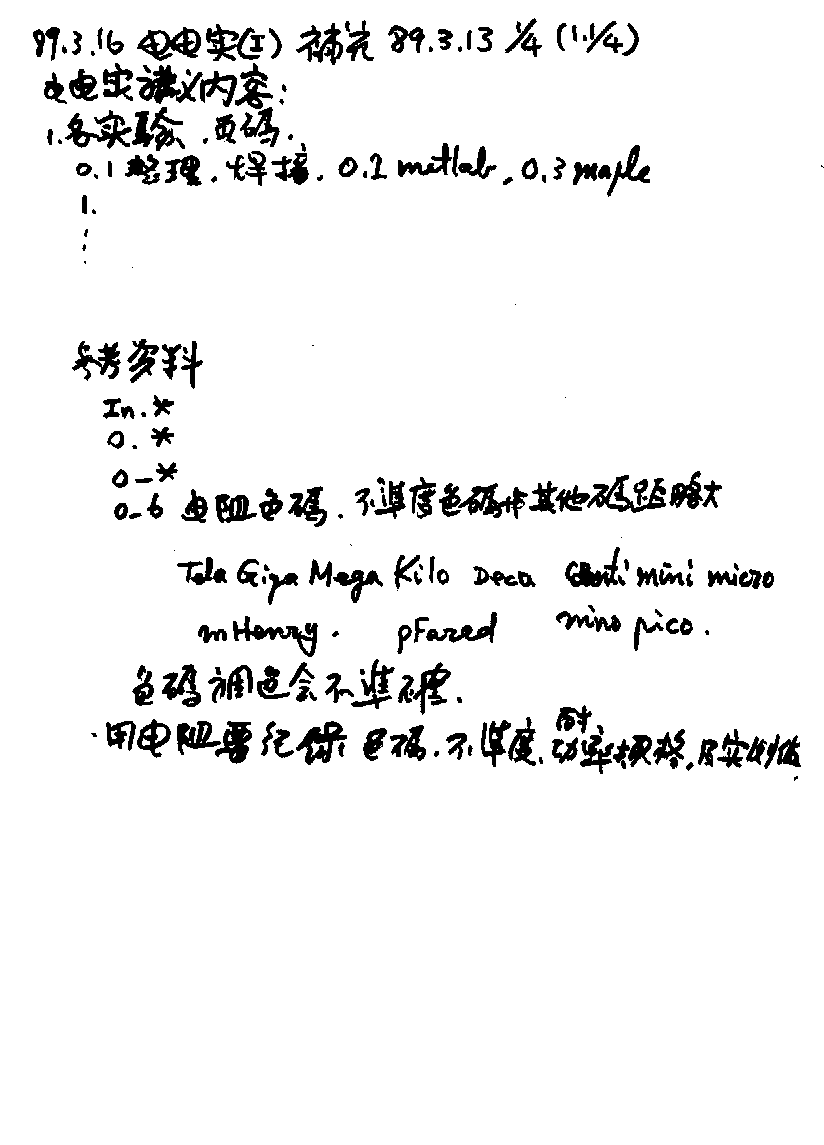 89.3.16 电电实(I) 補充 89.3.13 1/4 (1.1/4)
电电实講义内容:
1.各实驗.页碼.
0.1整理.焊接. 0.2 matlab, 0.3 maple
1.
⋮
参考资料
In.*
0.*
0-*
0-6 电阻色碼.不準度色碼与其他碼距略大
Tela Giga Mega Kilo Deca Centi mini micro
mHenry. pFared nino pico.
色碼调色会不準確.
·用电阻要纪錄色碼.不準度.耐功率規格.及实测值.